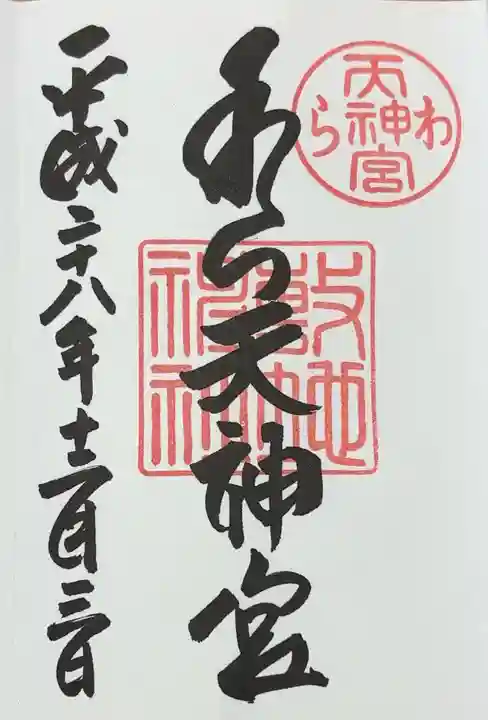 わら天神宮
敷地神社
わら天神宮
平成二十八年十二月三日